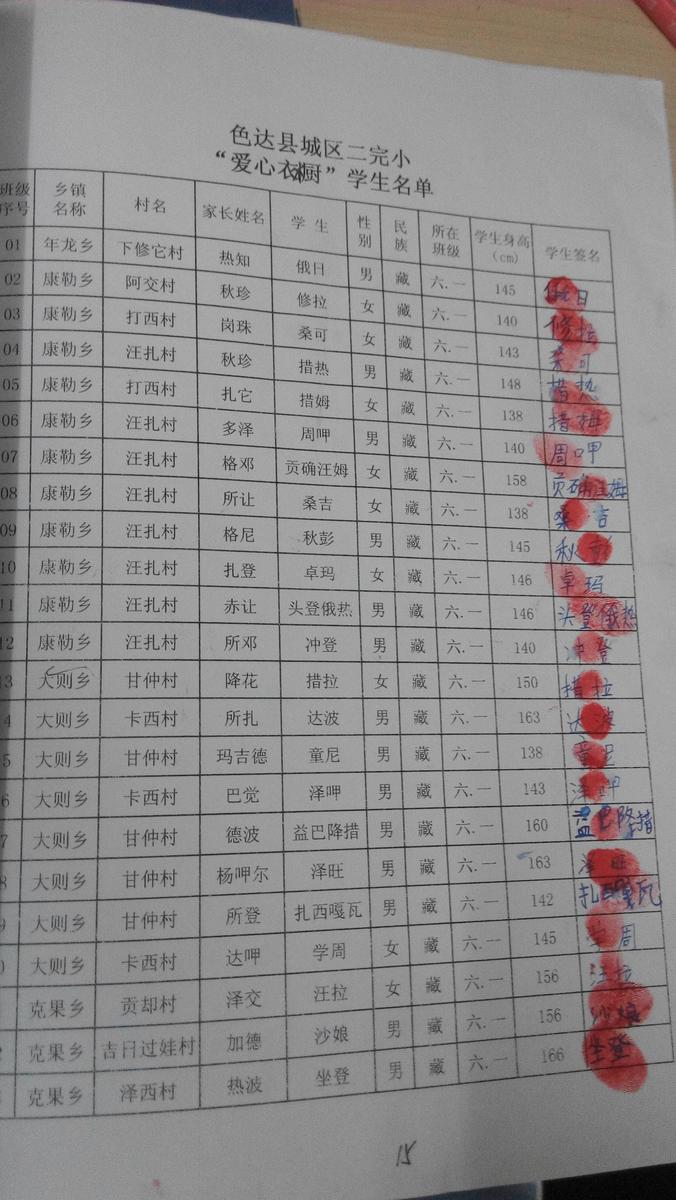 色达县城区二完小
“爱心衣橱”学生名单
班级序号 乡镇名称 村名 家长姓名 学生 性别 民族 所在班级 学生身高（cm） 学生签名
01 年龙乡 下修它村 热知 俄日 男 藏 六.一 145 俄日
02 康勒乡 阿交村 秋珍 修拉 女 藏 六.一 140 修拉
03 康勒乡 打西村 岗珠 桑可 女 藏 六.一 143 桑可
04 康勒乡 汪扎村 秋珍 措热 男 藏 六.一 148 措热
05 康勒乡 打西村 扎它 措姆 女 藏 六.一 138 措姆
06 康勒乡 汪扎村 多泽 周呷 男 藏 六.一 140 周呷
07 康勒乡 汪扎村 格邓 贡确汪姆 女 藏 六.一 158 贡确汪姆
08 康勒乡 汪扎村 所让 桑吉 女 藏 六.一 138 桑吉
09 康勒乡 汪扎村 格尼 秋彭 男 藏 六.一 145 秋彭
10 康勒乡 汪扎村 扎登 卓玛 女 藏 六.一 146 卓玛
11 康勒乡 汪扎村 赤让 头登俄热 男 藏 六.一 146 头登俄热
12 康勒乡 汪扎村 所邓 冲登 男 藏 六.一 140 冲登
13 大则乡 甘仲村 降花 措拉 女 藏 六.一 150 措拉
4 大则乡 卡西村 所扎 达波 男 藏 六.一 163 达波
5 大则乡 甘仲村 玛吉德 童尼 男 藏 六.一 138 童尼
6 大则乡 卡西村 巴觉 泽呷 男 藏 六.一 143 泽呷
7 大则乡 甘仲村 德波 益巴降措 男 藏 六.一 160 益巴降措
8 大则乡 甘仲村 杨呷尔 泽旺 男 藏 六.一 163 泽旺
9 大则乡 甘仲村 所登 扎西嘎瓦 男 藏 六.一 142 扎西嘎瓦
0 大则乡 卡西村 达呷 学周 女 藏 六.一 145 学周
克果乡 贡却村 泽交 汪拉 女 藏 六.一 156 汪拉
2 克果乡 吉日过娃村 加德 沙娘 男 藏 六.一 156 沙娘
克果乡 泽西村 热波 坐登 男 藏 六.一 166 坐登
15